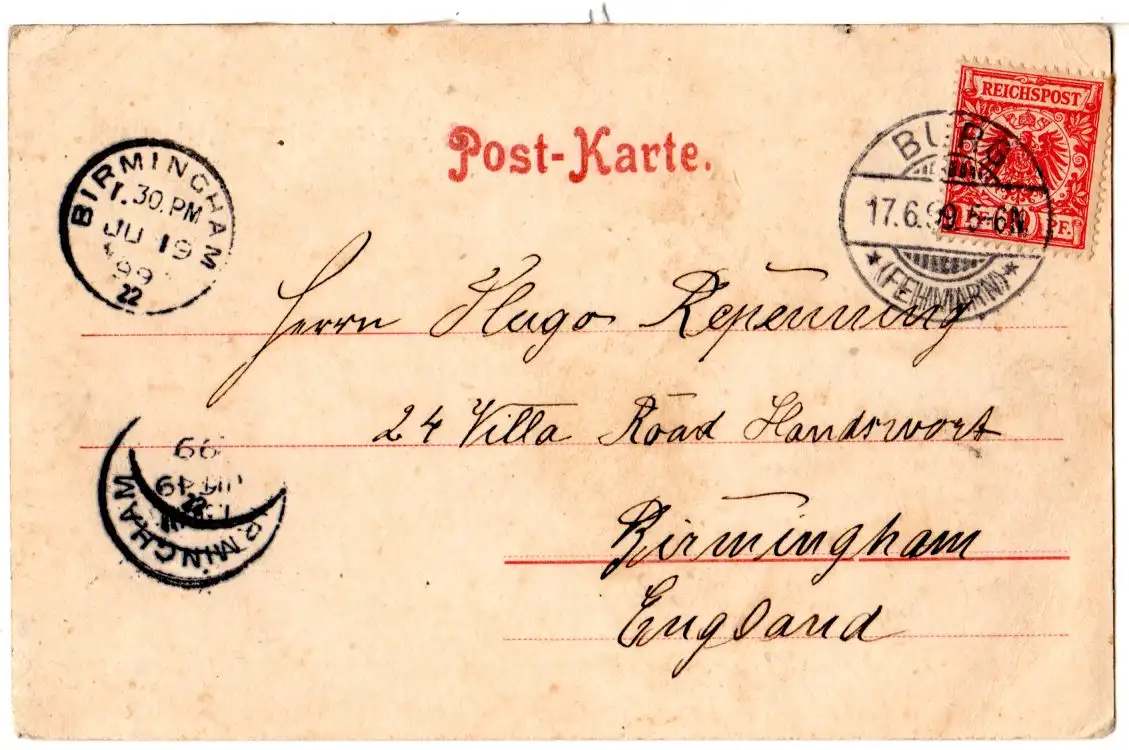 Post-Karte.
REICHSPOST
10 PF.
BURG
17.6.99 5-6N.
*(FEHMARN)*
BIRMINGHAM
1.30.PM
JU 19
99
22
Herrn Hugo Repenning
24 Villa Road Handswort
Birmingham
England
BIRMINGHAM
99
19
22